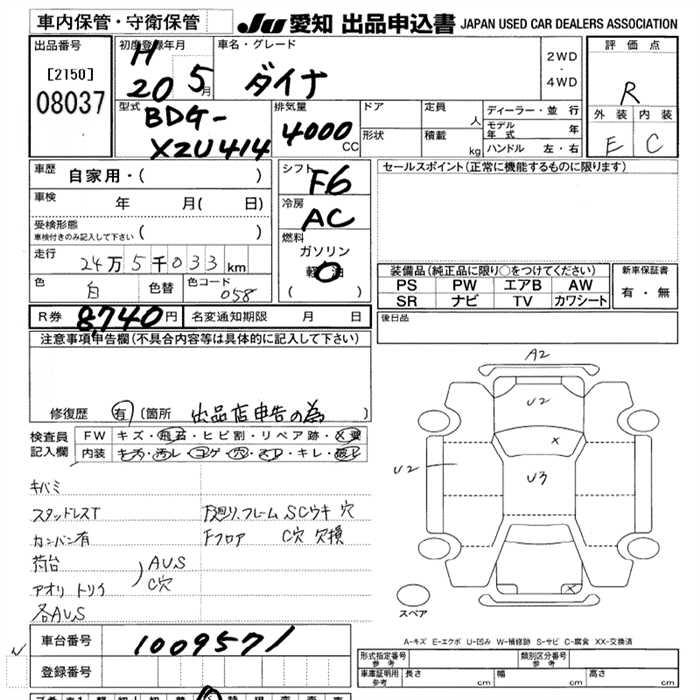 車内保管・守衛保管
JU 愛知 出品申込書 JAPAN USED CAR DEALERS ASSOCIATION
出品番号
[2150]
08037
初度登録年月
H
20 5月
車名・グレード
ダイナ
2WD
・
4WD
評価点
R
外装 内装
E C
型式
BDG-
XZU414
排気量
4000
CC
ドア
形状
定員
人
積載
kg
ディーラー・並行
モデル年式 年
ハンドル 左・右
車歴 自家用・( )
車検 年 月( 日)
受検形態
車検付きのみ記入して下さい ( )
走行 24万5千033km
色 白 色替 色コード 058
シフト
F6
冷房
AC
燃料
ガソリン
軽油
( )
セールスポイント(正常に機能するものに限ります)
装備品(純正品に限り○をつけてください)
PS PW エアB AW
SR ナビ TV カワシート
新車保証書
有・無
R券 8,740円 名変通知期限 月 日
後日品
注意事項申告欄(不具合内容等は具体的に記入して下さい)
修復歴 有 (箇所 出品店申告の為 )
検査員
記入欄
FW キズ・飛石・ヒビ割・リペア跡・X要
内装 キズ・汚レ・コゲ・穴・スレ・キレ・破レ
キバミ
スタッドレスT
カンバン有
荷台
アオリ トリイ
AUS
C穴
各AUS
F廻リ、フレーム SCウキ 穴
Fフロア C穴 欠損
A2
U2
X
U2
U3
X
スペア
A-キズ E-エクボ U-凹み W-補修跡 S-サビ C-腐食 XX-交換済
車台番号 1009571
登録番号
形式指定番号
参考
類別区分番号
参考
車庫証明用
参考
長さ cm 幅 cm 高さ cm